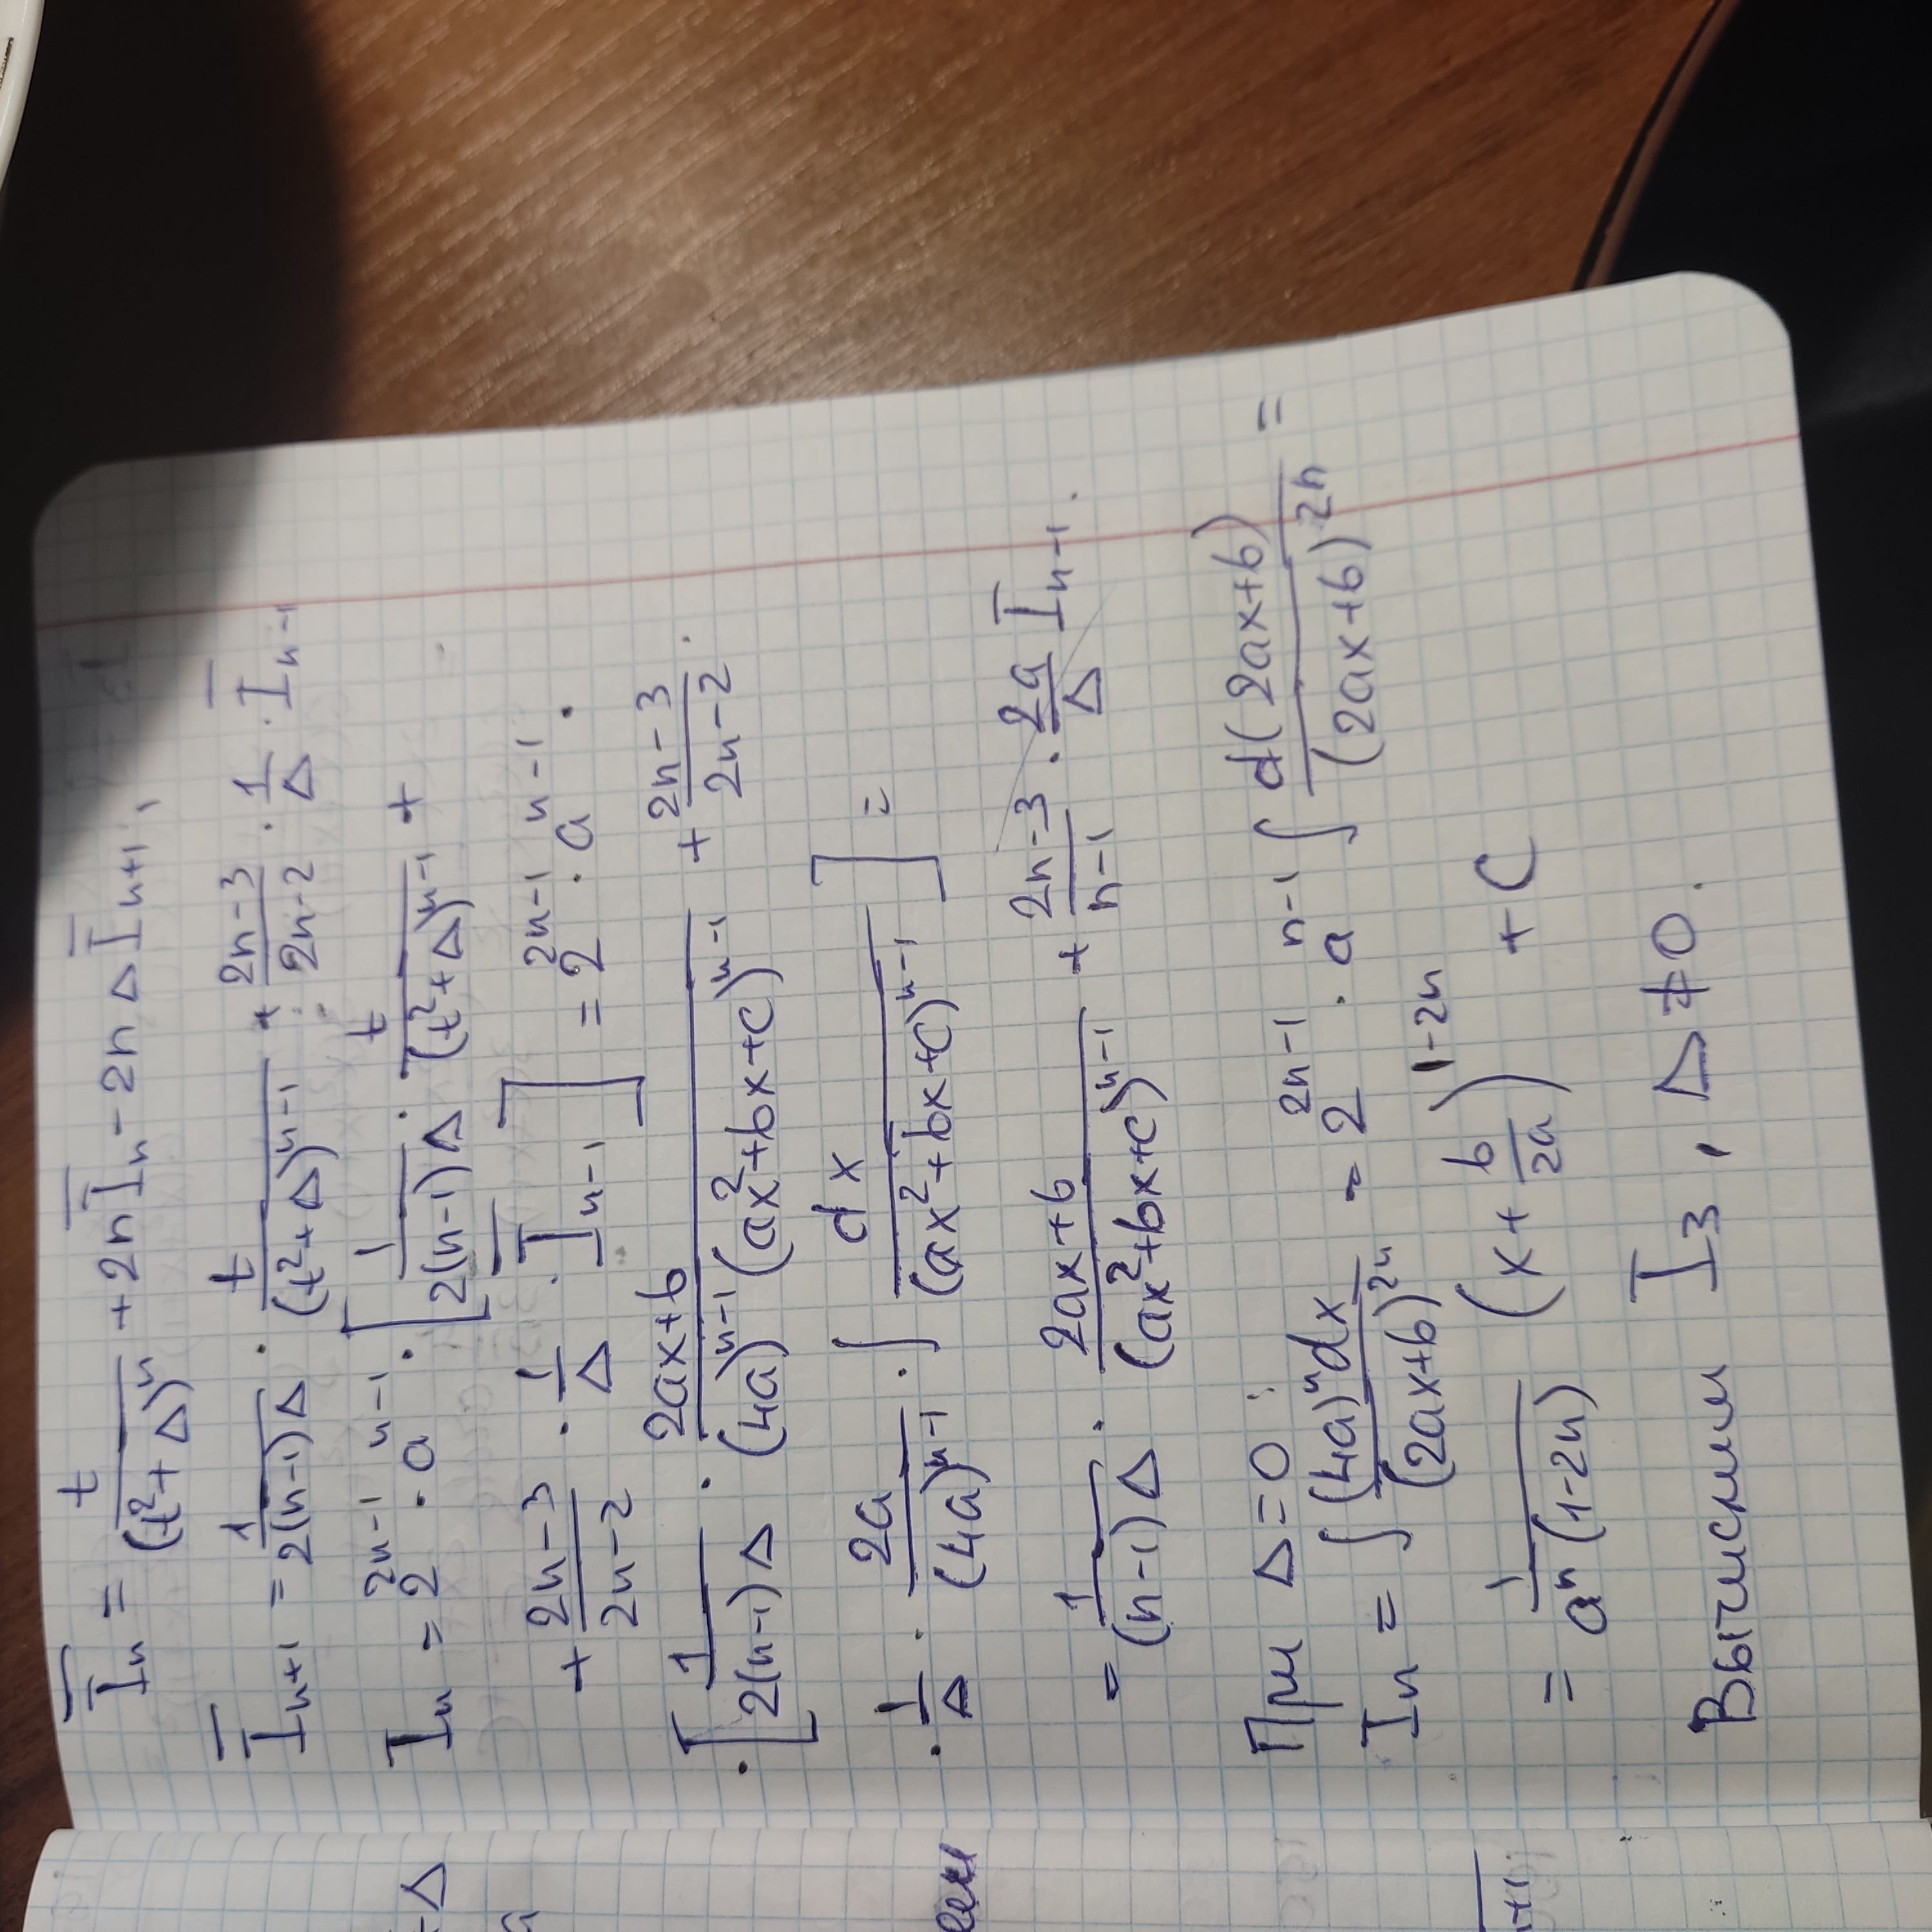 I̅ₙ = t/(t²+Δ)ⁿ + 2n I̅ₙ - 2n Δ I̅ₙ₊₁,
I̅ₙ₊₁ = 1/(2(n-1)Δ) · t/(t²+Δ)ⁿ⁻¹ + (2n-3)/(2n-2) · 1/Δ · I̅ₙ₋₁
Iₙ = 2²ⁿ⁻¹ · aⁿ⁻¹ · [1/(2(n-1)Δ) · t/(t²+Δ)ⁿ⁻¹ +
+ (2n-3)/(2n-2) · 1/Δ · I̅ₙ₋₁] = 2²ⁿ⁻¹ · aⁿ⁻¹ ·
· [1/(2(n-1)Δ) · (2ax+b)/((4a)ⁿ⁻¹(ax²+bx+c)ⁿ⁻¹) + (2n-3)/(2n-2) ·
· 1/Δ · 2a/(4a)ⁿ⁻¹ · ∫ dx/(ax²+bx+c)ⁿ⁻¹] =
= 1/((n-1)Δ) · (2ax+b)/(ax²+bx+c)ⁿ⁻¹ + (2n-3)/(n-1) · 2a/Δ Iₙ₋₁.
При Δ=0:
Iₙ = ∫ (4a)ⁿdx/(2ax+b)²ⁿ = 2²ⁿ⁻¹ · aⁿ⁻¹ ∫ d(2ax+b)/(2ax+b)²ⁿ =
= 1/(aⁿ(1-2n)) (x + b/2a)¹⁻²ⁿ + C
Вычислим I₃, Δ≠0.